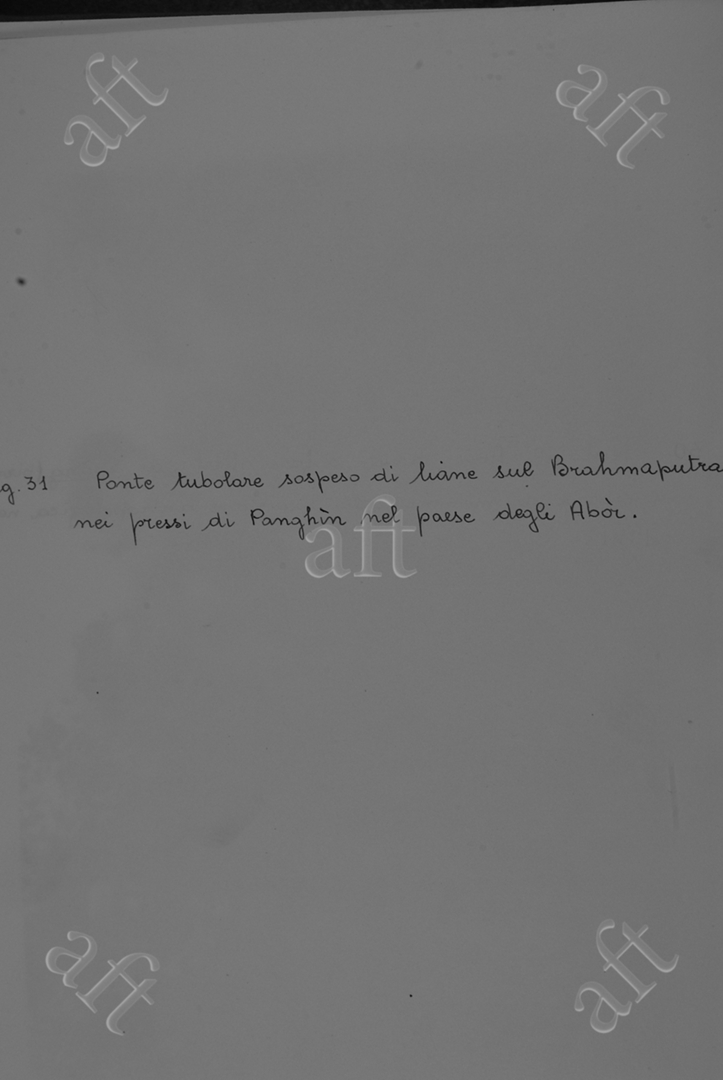 g. 31 Ponte tubolare sospeso di liane sul Brahmaputra
nei pressi di Panghìn nel paese degli Abòr.
aft
aft
aft
aft
aft